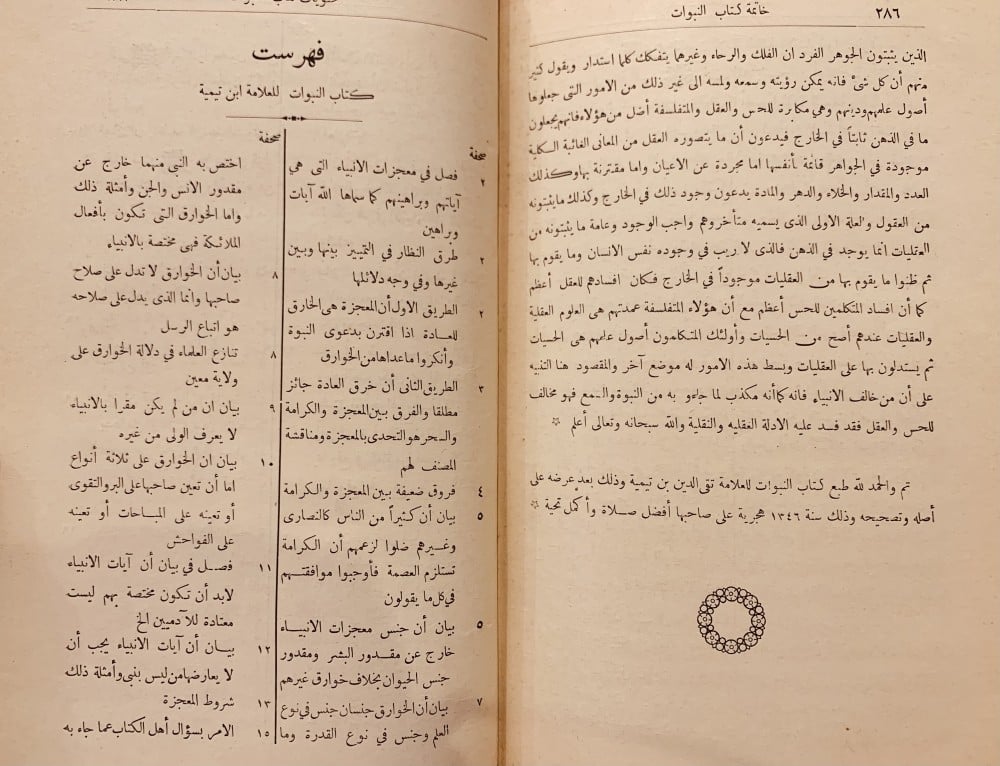 ٢٨٦
خاتمة كتاب النبوات
الذين يثبتون الجوهر الفرد ان الفلك والرحاء وغيرهما يتفكك كلما استدار ويقول كثير
منهم أن كل شئ فانه يمكن رؤيته وسمعه ولمسه الى غير ذلك من الامور التى جعلوها
أصول علمهم ودينهم وهى مكابرة للحس والعقل والمتفلسفة أضل من هؤلاء فانهم يجعلون
ما فى الذهن ثابتاً فى الخارج فيدعون أن ما يتصوره العقل من المعانى الغائبة الكلية
موجودة فى الجواهر قائمة بأنفسها اما مجردة عن الاعيان واما مقترنة بها وكذلك
العدد والمقدار والخلاء والدهر والمادة يدعون وجود ذلك فى الخارج وكذلك ما يثبتونه
من العقول والعلة الاولى الذى يسميه متأخروهم واجب الوجود وعامة ما يثبتونه من
العقليات انما يوجد فى الذهن فالذى لا ريب فى وجوده نفس الانسان وما يقوم بها
ثم ظنوا ما يقوم بها من العقليات موجوداً فى الخارج فكان افسادهم للعقل أعظم
كما أن افساد المتكلمين للحس أعظم مع أن هؤلاء المتفلسفة عمدتهم هى العلوم العقلية
والعقليات عندهم أصح من الحسيات وأولئك المتكلمون أصول علمهم هى الحسيات
ثم يستدلون بها على العقليات وبسط هذه الامور له موضع آخر والمقصود هنا التنبيه
على أن من خالف الانبياء فانه كما أنه مكذب لما جاءو به من النبوة والسمع فهو مخالف
للحس والعقل فقد فسد عليه الادلة العقليه والنقلية والله سبحانه وتعالى أعلم *
تم والحمد لله طبع كتاب النبوات للعلامة تقى الدين بن تيمية وذلك بعد عرضه على
أصله وتصحيحه وذلك سنة ١٣٤٦ هجرية على صاحبها أفضل صلاة وأكمل تحية *
فهرست
كتاب النبوات للعلامة ابن تيمية
صحفة
٢ فصل في معجزات الانبياء التى هي
آياتهم وبراهينهم كما سماها الله آيات
وبراهين
٢ طرق النظار في التمييز بينها وبين
غيرها وفي وجه دلائلها
٢ الطريق الاول أن المعجزة هى الخارق
للعادة اذا اقترن بدعوى النبوة
وأنكروا ماعداها من الخوارق
٣ الطريق الثانى أن خرق العادة جائز
مطلقا والفرق بين المعجزة والكرامة
والسحر هو التحدى بالمعجزة ومناقشة
المصنف لهم
٤ فروق ضعيفة بين المعجزة والكرامة
٥ بيان أن كثيراً من الناس كالنصارى
وغيرهم ضلوا لزعمهم أن الكرامة
تستلزم العصمة فأوجبوا موافقتهم
في كل ما يقولون
٥ بيان أن جنس معجزات الانبياء
خارج عن مقدور البشر ومقدور
جنس الحيوان بخلاف خوارق غيرهم
٧ بيان أن الخوارق جنسان جنس في نوع
العلم وجنس في نوع القدرة وما
صحفة
اختص به النبي منهما خارج عن
مقدور الانس والجن وأمثلة ذلك
واما الخوارق التى تكون بأفعال
الملائكة فهى مختصة بالانبياء
٨ بيان أن الخوارق لا تدل على صلاح
صاحبها وانما الذى يدل على صلاحه
هو اتباع الرسل
٨ تنازع العلماء في دلالة الخوارق على
ولاية معين
٩ بيان ان من لم يكن مقرا بالانبياء
لا يعرف الولى من غيره
١٠ بيان ان الخوارق على ثلاثة أنواع
اما أن تعين صاحبها على البر والتقوى
أو تعينه على المباحات أو تعينه
على الفواحش
١١ فصل في بيان أن آيات الانبياء
لابد أن تكون مختصة بهم ليست
معتادة للآدميين الخ
١٢ بيان أن آيات الانبياء يجب أن
لا يعارضها من ليس بنبي وأمثلة ذلك
١٣ شروط المعجزة
١٥ الامر بسؤال أهل الكتاب عما جاء به